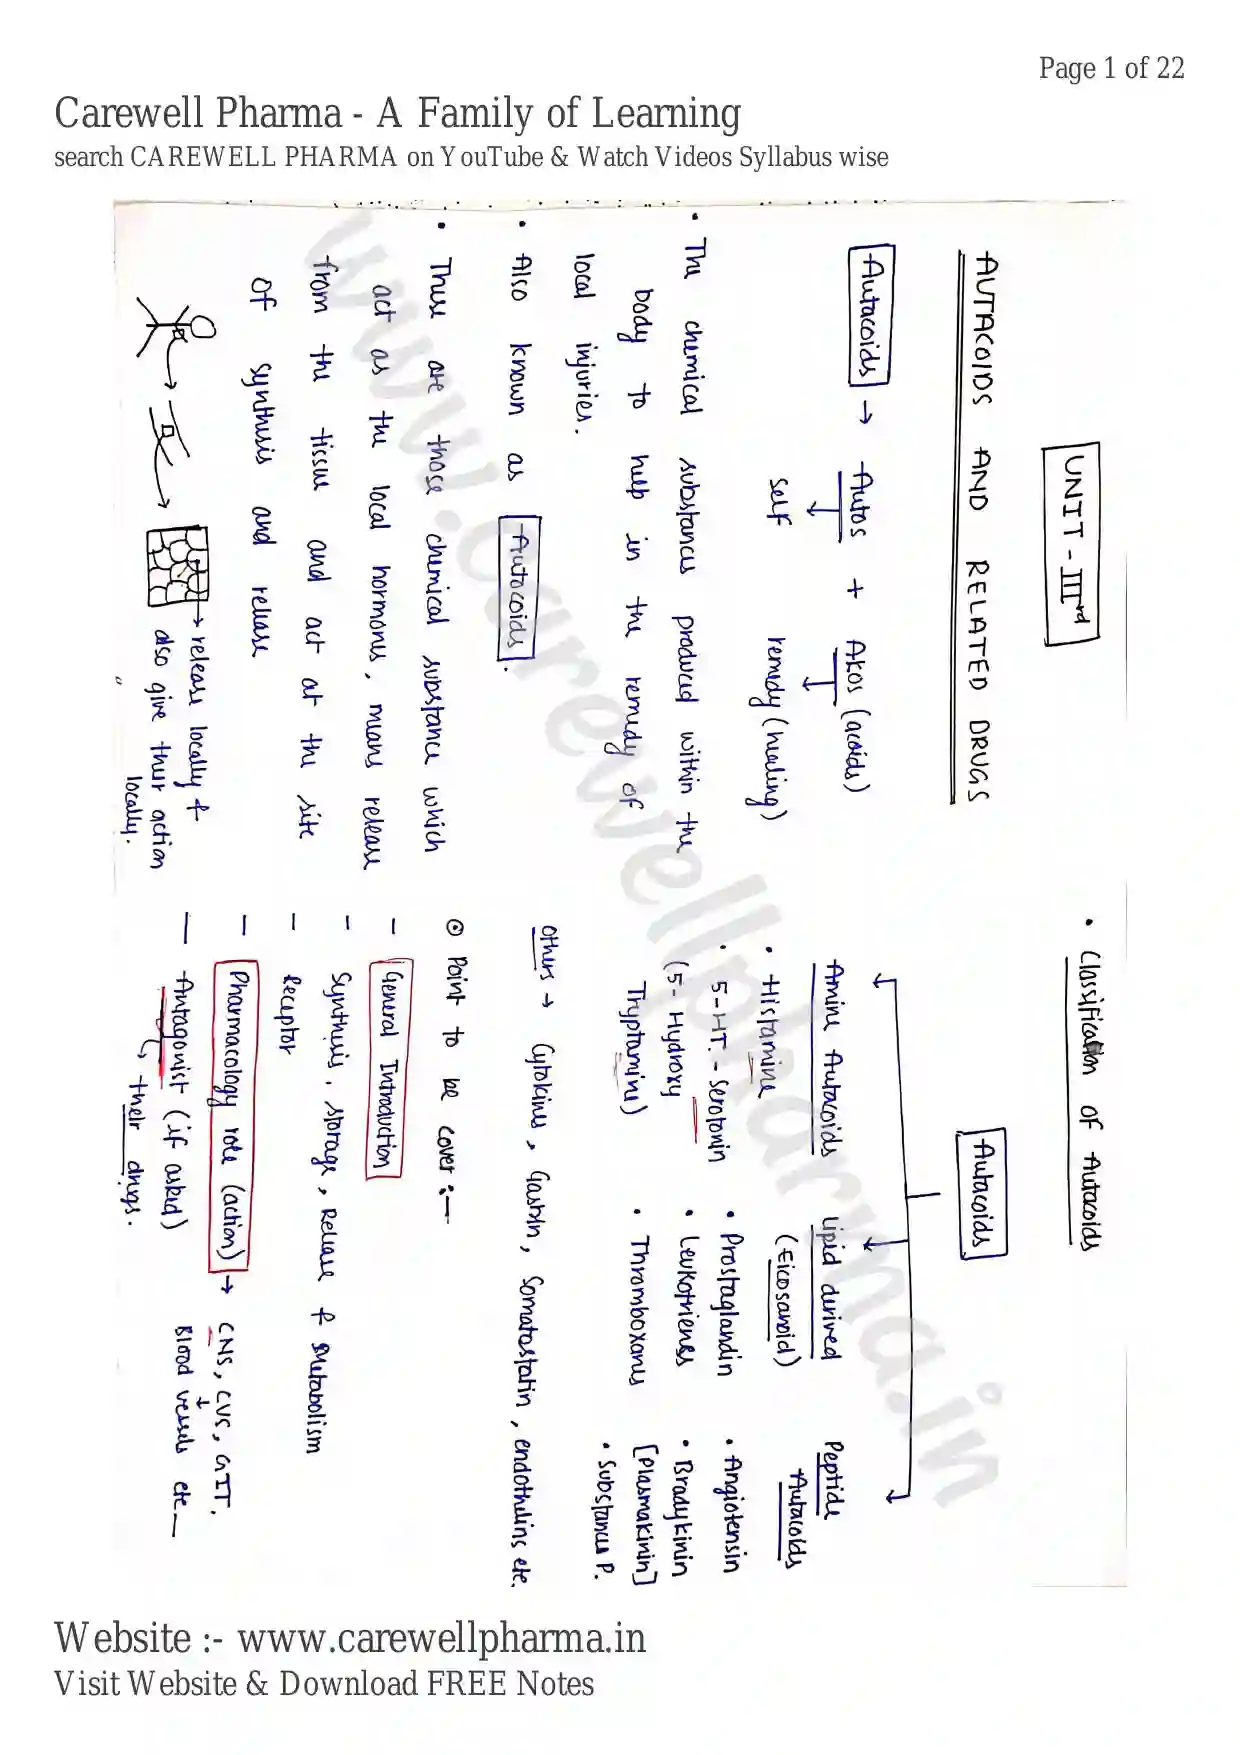 Page 1 of 22
Carewell Pharma - A Family of Learning
search CAREWELL PHARMA on YouTube & Watch Videos Syllabus wise
UNIT - IIIrd
AUTACOIDS AND RELATED DRUGS
Autacoids → Autos + Akos (acoids)
self remedy (healing)
• The chemical substances produced within the
body to help in the remedy of
local injuries.
• Also known as Autocoids.
• These are those chemical substance which
act as the local hormones, means release
from the tissue and act at the site
of synthesis and release
→ release locally &
also give their action
locally.
• Classification of Autacoids
Autacoids
Amine Autacoids
• Histamine
• 5-HT - Serotonin
(5-Hydroxy
Tryptamine)
Lipid derived
(Eicosanoid)
• Prostaglandin
• Leukotrienes
• Thromboxanes
Peptide
Autacoids
• Angiotensin
• Bradykinin
[Plasmakinin]
• Substance P.
others → Cytokines, Gastrin, Somatostatin, endothelins etc.
⊙ Point to be cover :—
— General Introduction
— Synthesis, storage, Release & Metabolism
— Receptor
— Pharmacology role (action) → CNS, CVS, GIT.
Blood vessels etc —
— Antagonist (if asked)
→ their drugs.
www.carewellpharma.in
Website :- www.carewellpharma.in
Visit Website & Download FREE Notes